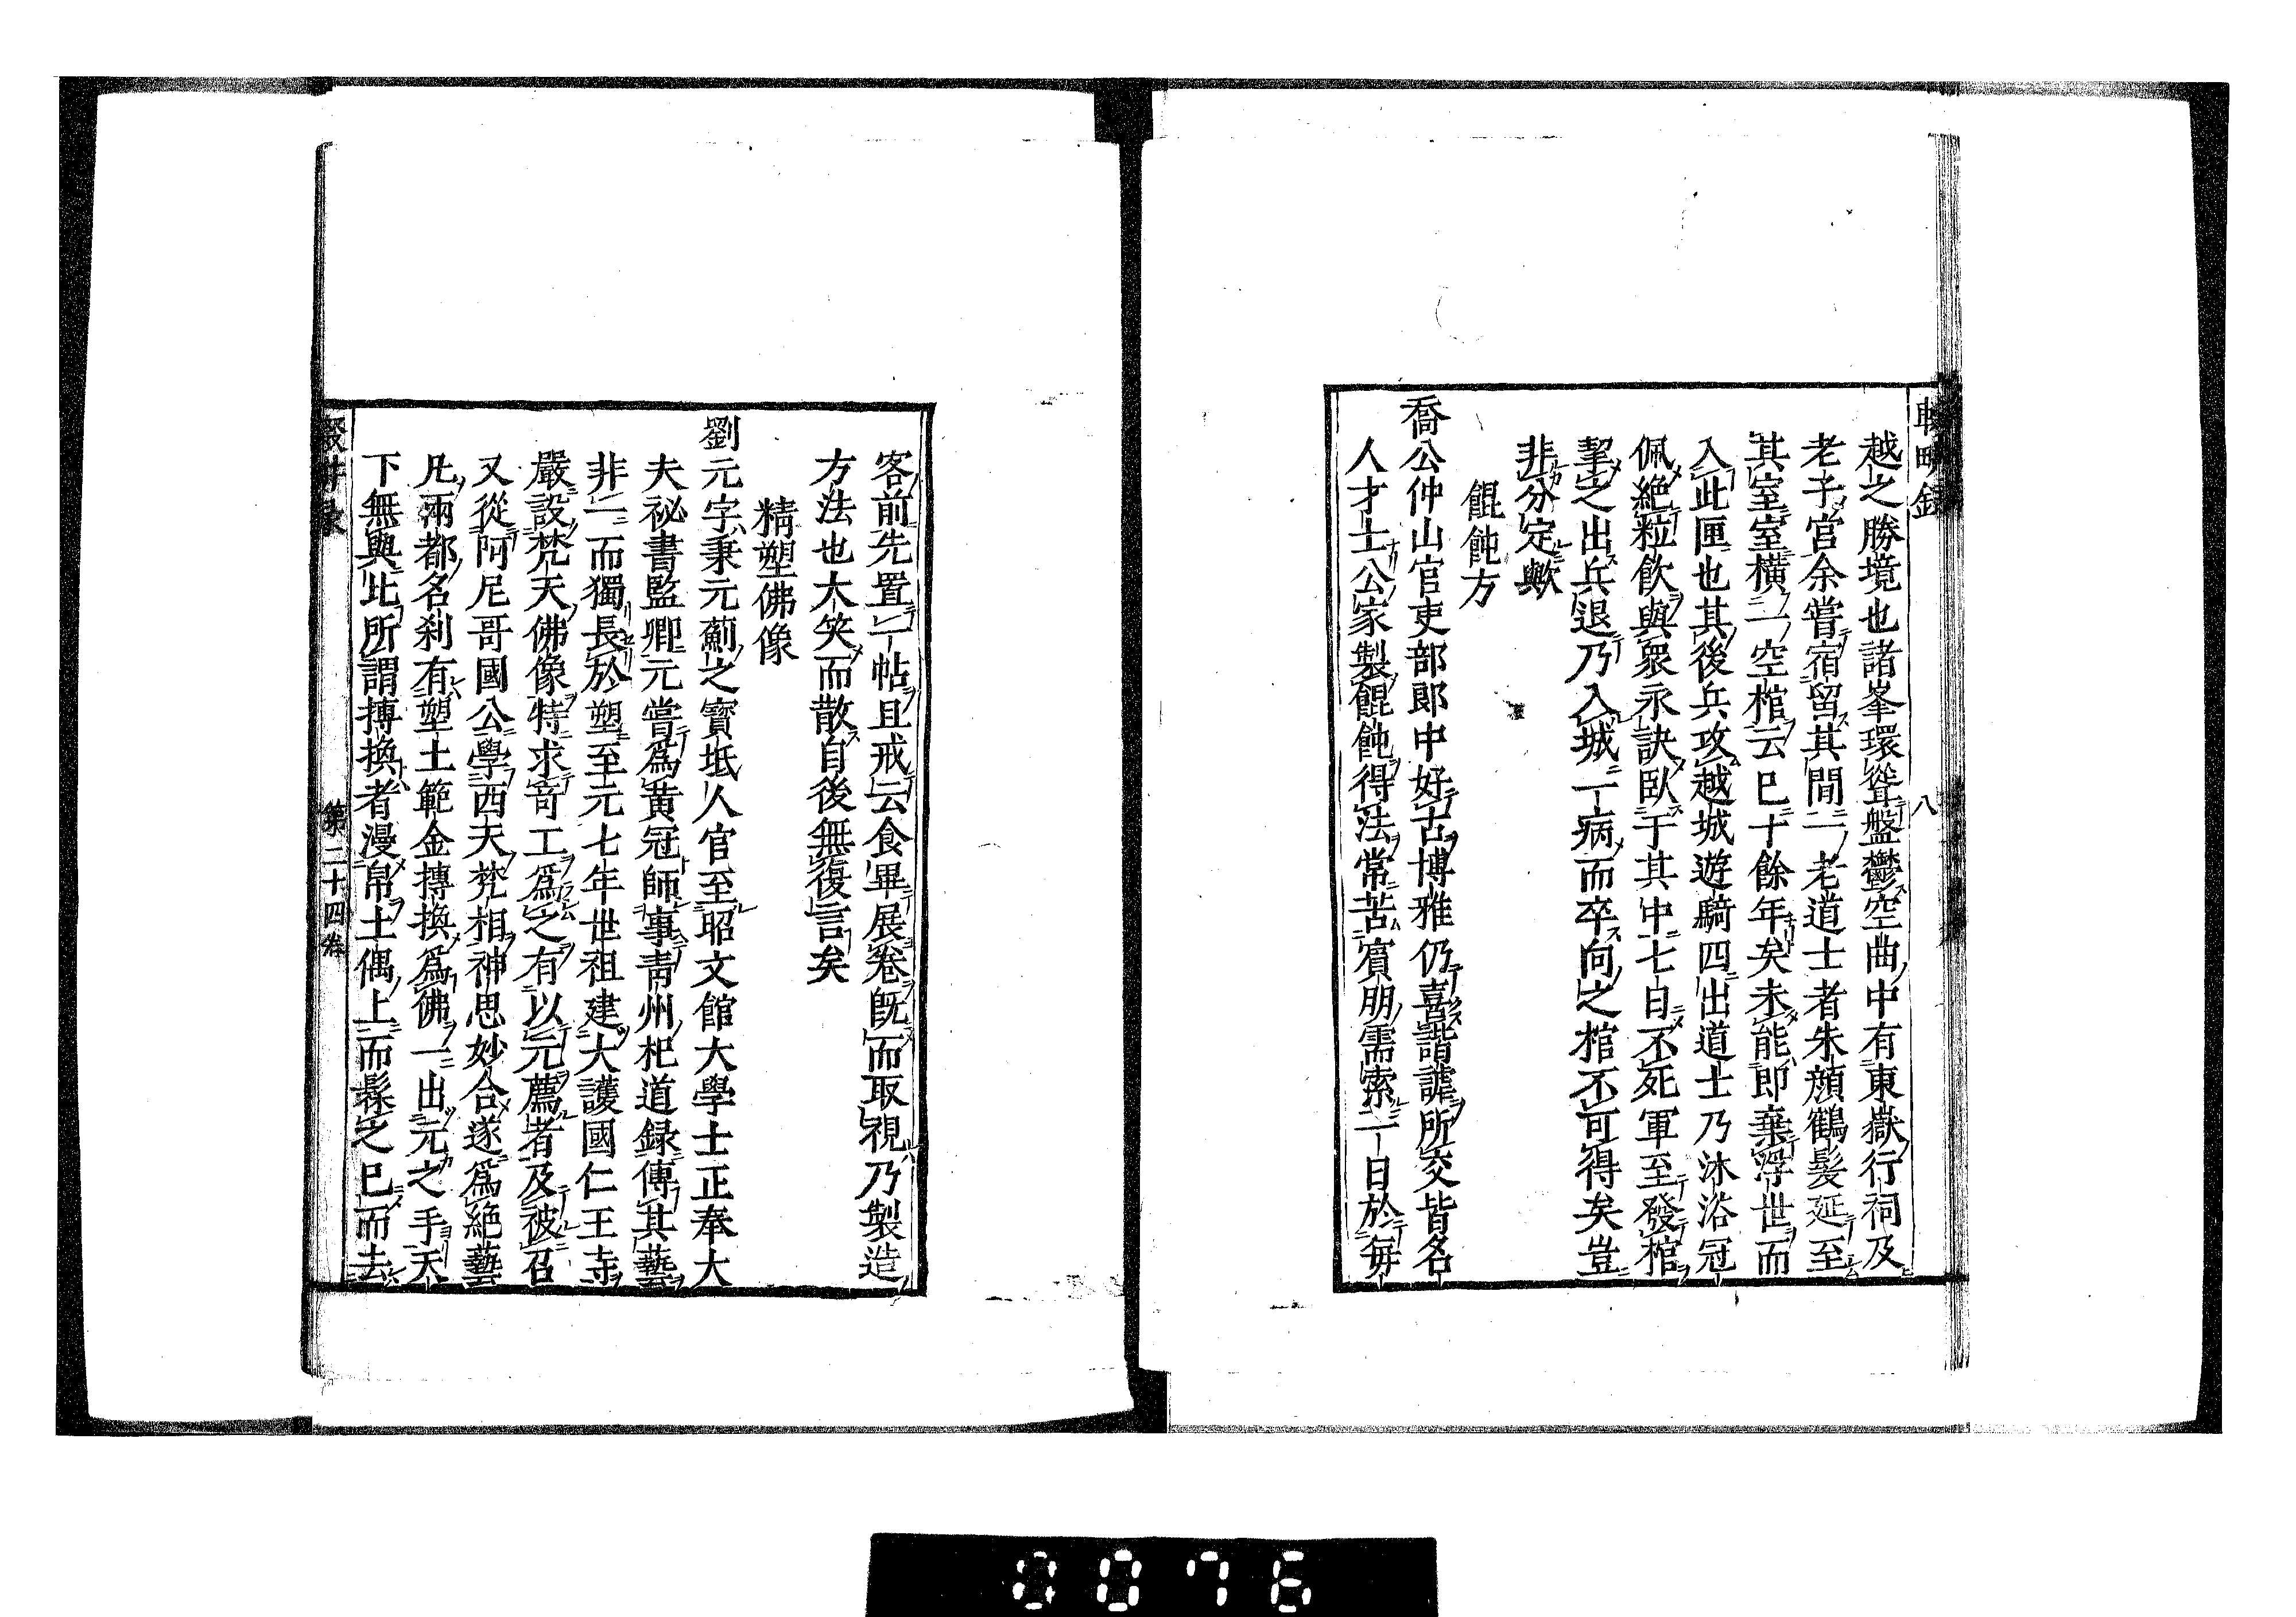 越之勝境也諸峯環聳盤鬱空曲中有東嶽行祠及
老子宮余嘗宿留其間一老道士者朱顏鶴髮延至
其室室橫一空棺云巳十餘年矣未能即棄浮世而
入此匣也其後兵攻越城遊騎四出道士乃沐浴冠
佩絶粒飲與衆永訣臥于其中七日不死軍至發棺
挈之出兵退乃入城一病而卒向之棺不可得矣豈
非分定歟
餛飩方
喬公仲山官吏部郎中好古博雅仍喜諧謔所交皆名
人才士公家製餛飩得法常苦賓朋需索一日於每
八
客前先置一帖且戒云食畢展卷旣而取視乃製造
方法也大笑而散自後無復言矣
精塑佛像
劉元字秉元薊之寶坻人官至昭文館大學士正奉大
夫祕書監卿元嘗爲黃冠師事靑州杞道録傳其藝
非一而獨長於塑至元七年世祖建大護國仁王寺
嚴設梵天佛像特求竒工爲之有以元薦者及被召
又從阿尼哥國公學西天梵相神思妙合遂爲絶藝
凡兩都名刹有塑土範金搏換爲佛一出元之手天
下無與比所謂搏換者漫帛土偶上而髹之巳而去
第二十四卷
0076